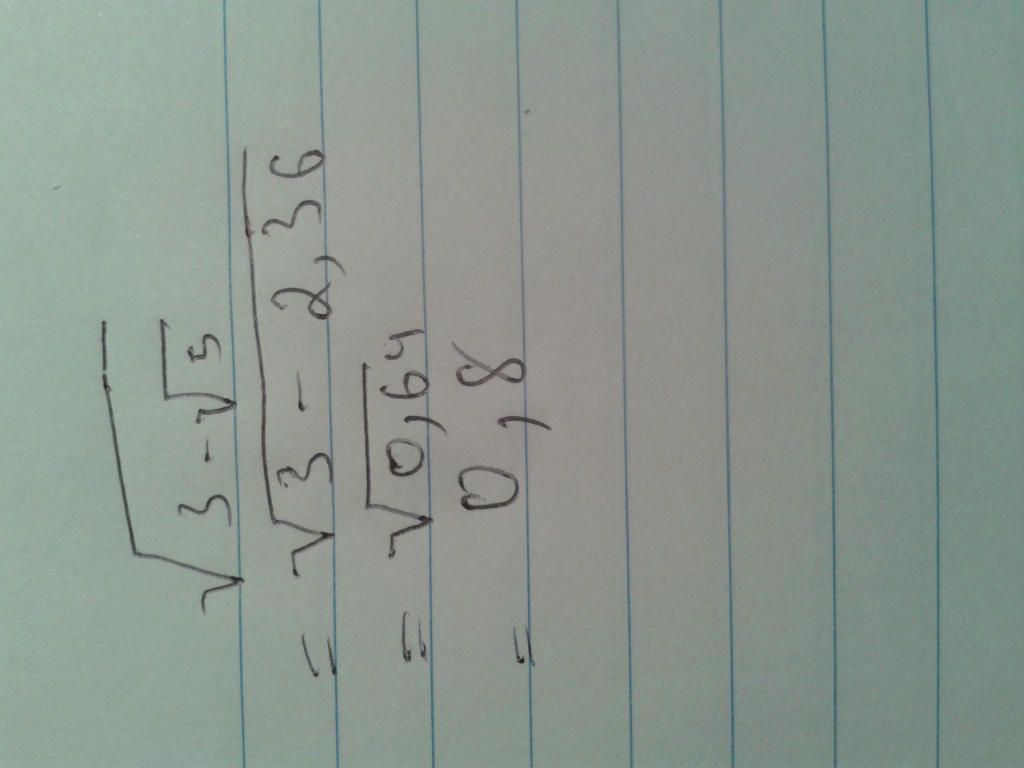 √(3-√5)
= √(3-2,36)
= √0,64
= 0,8